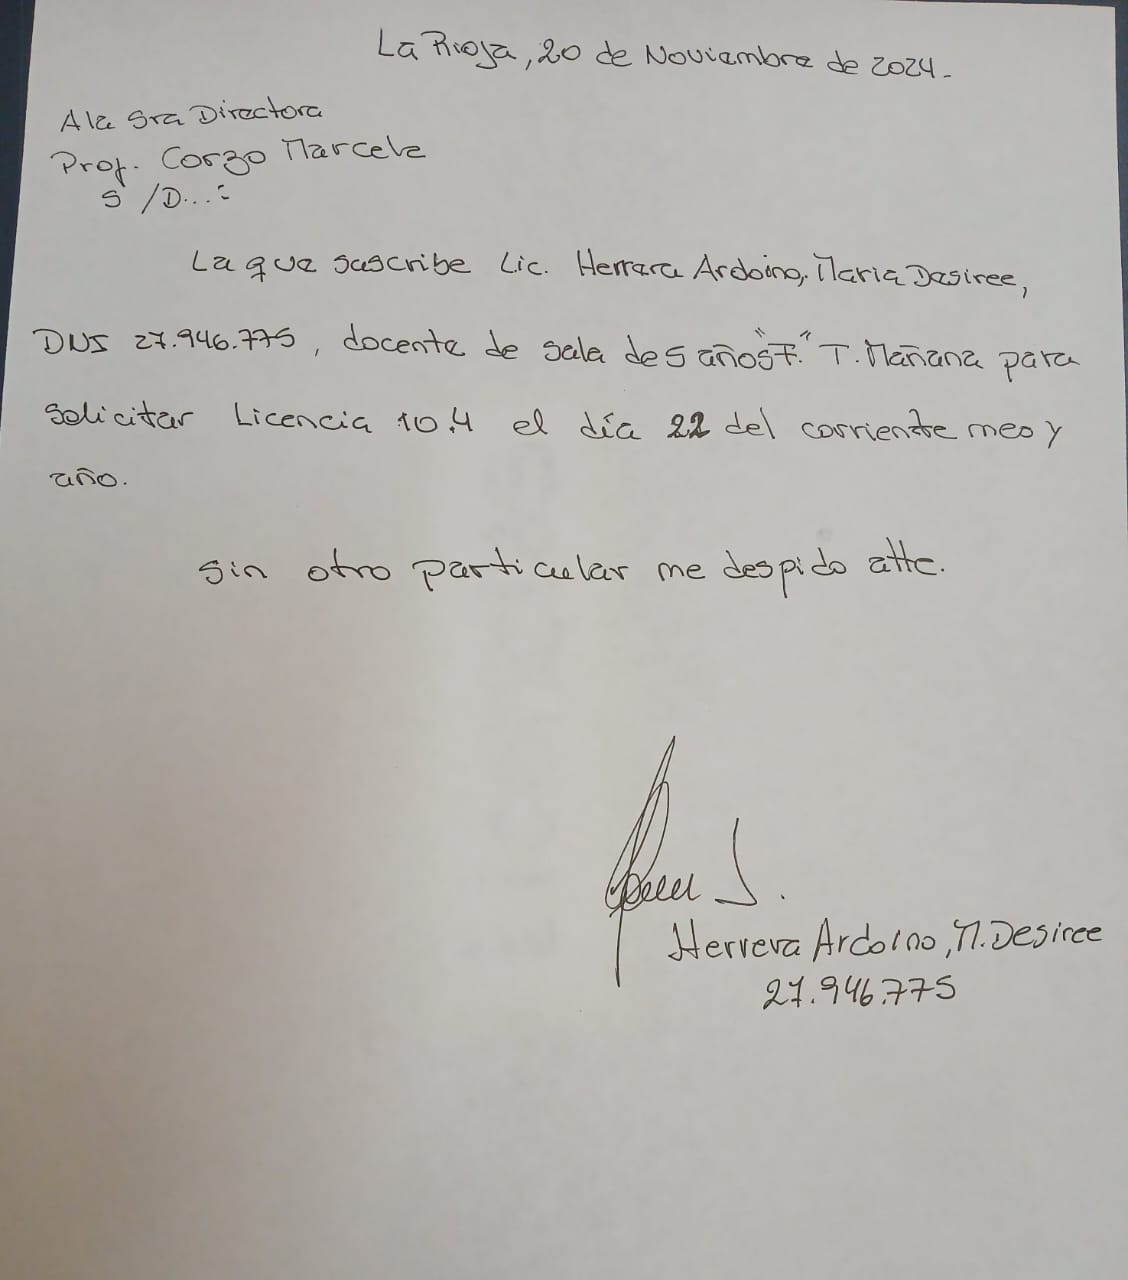 La Rioja, 20 de Noviembre de 2024.
A la Sra Directora
Prof. Corzo Marcela
S /D...:
La que suscribe Lic. Herrera Ardoino, Maria Desiree,
DNI 27.946.775, docente de sala de 5 años "F." T. Mañana para
solicitar Licencia 10.4 el día 22 del corriente mes y
año.
Sin otro particular me despido atte.
Herrera Ardoino, M. Desiree
27.946.775